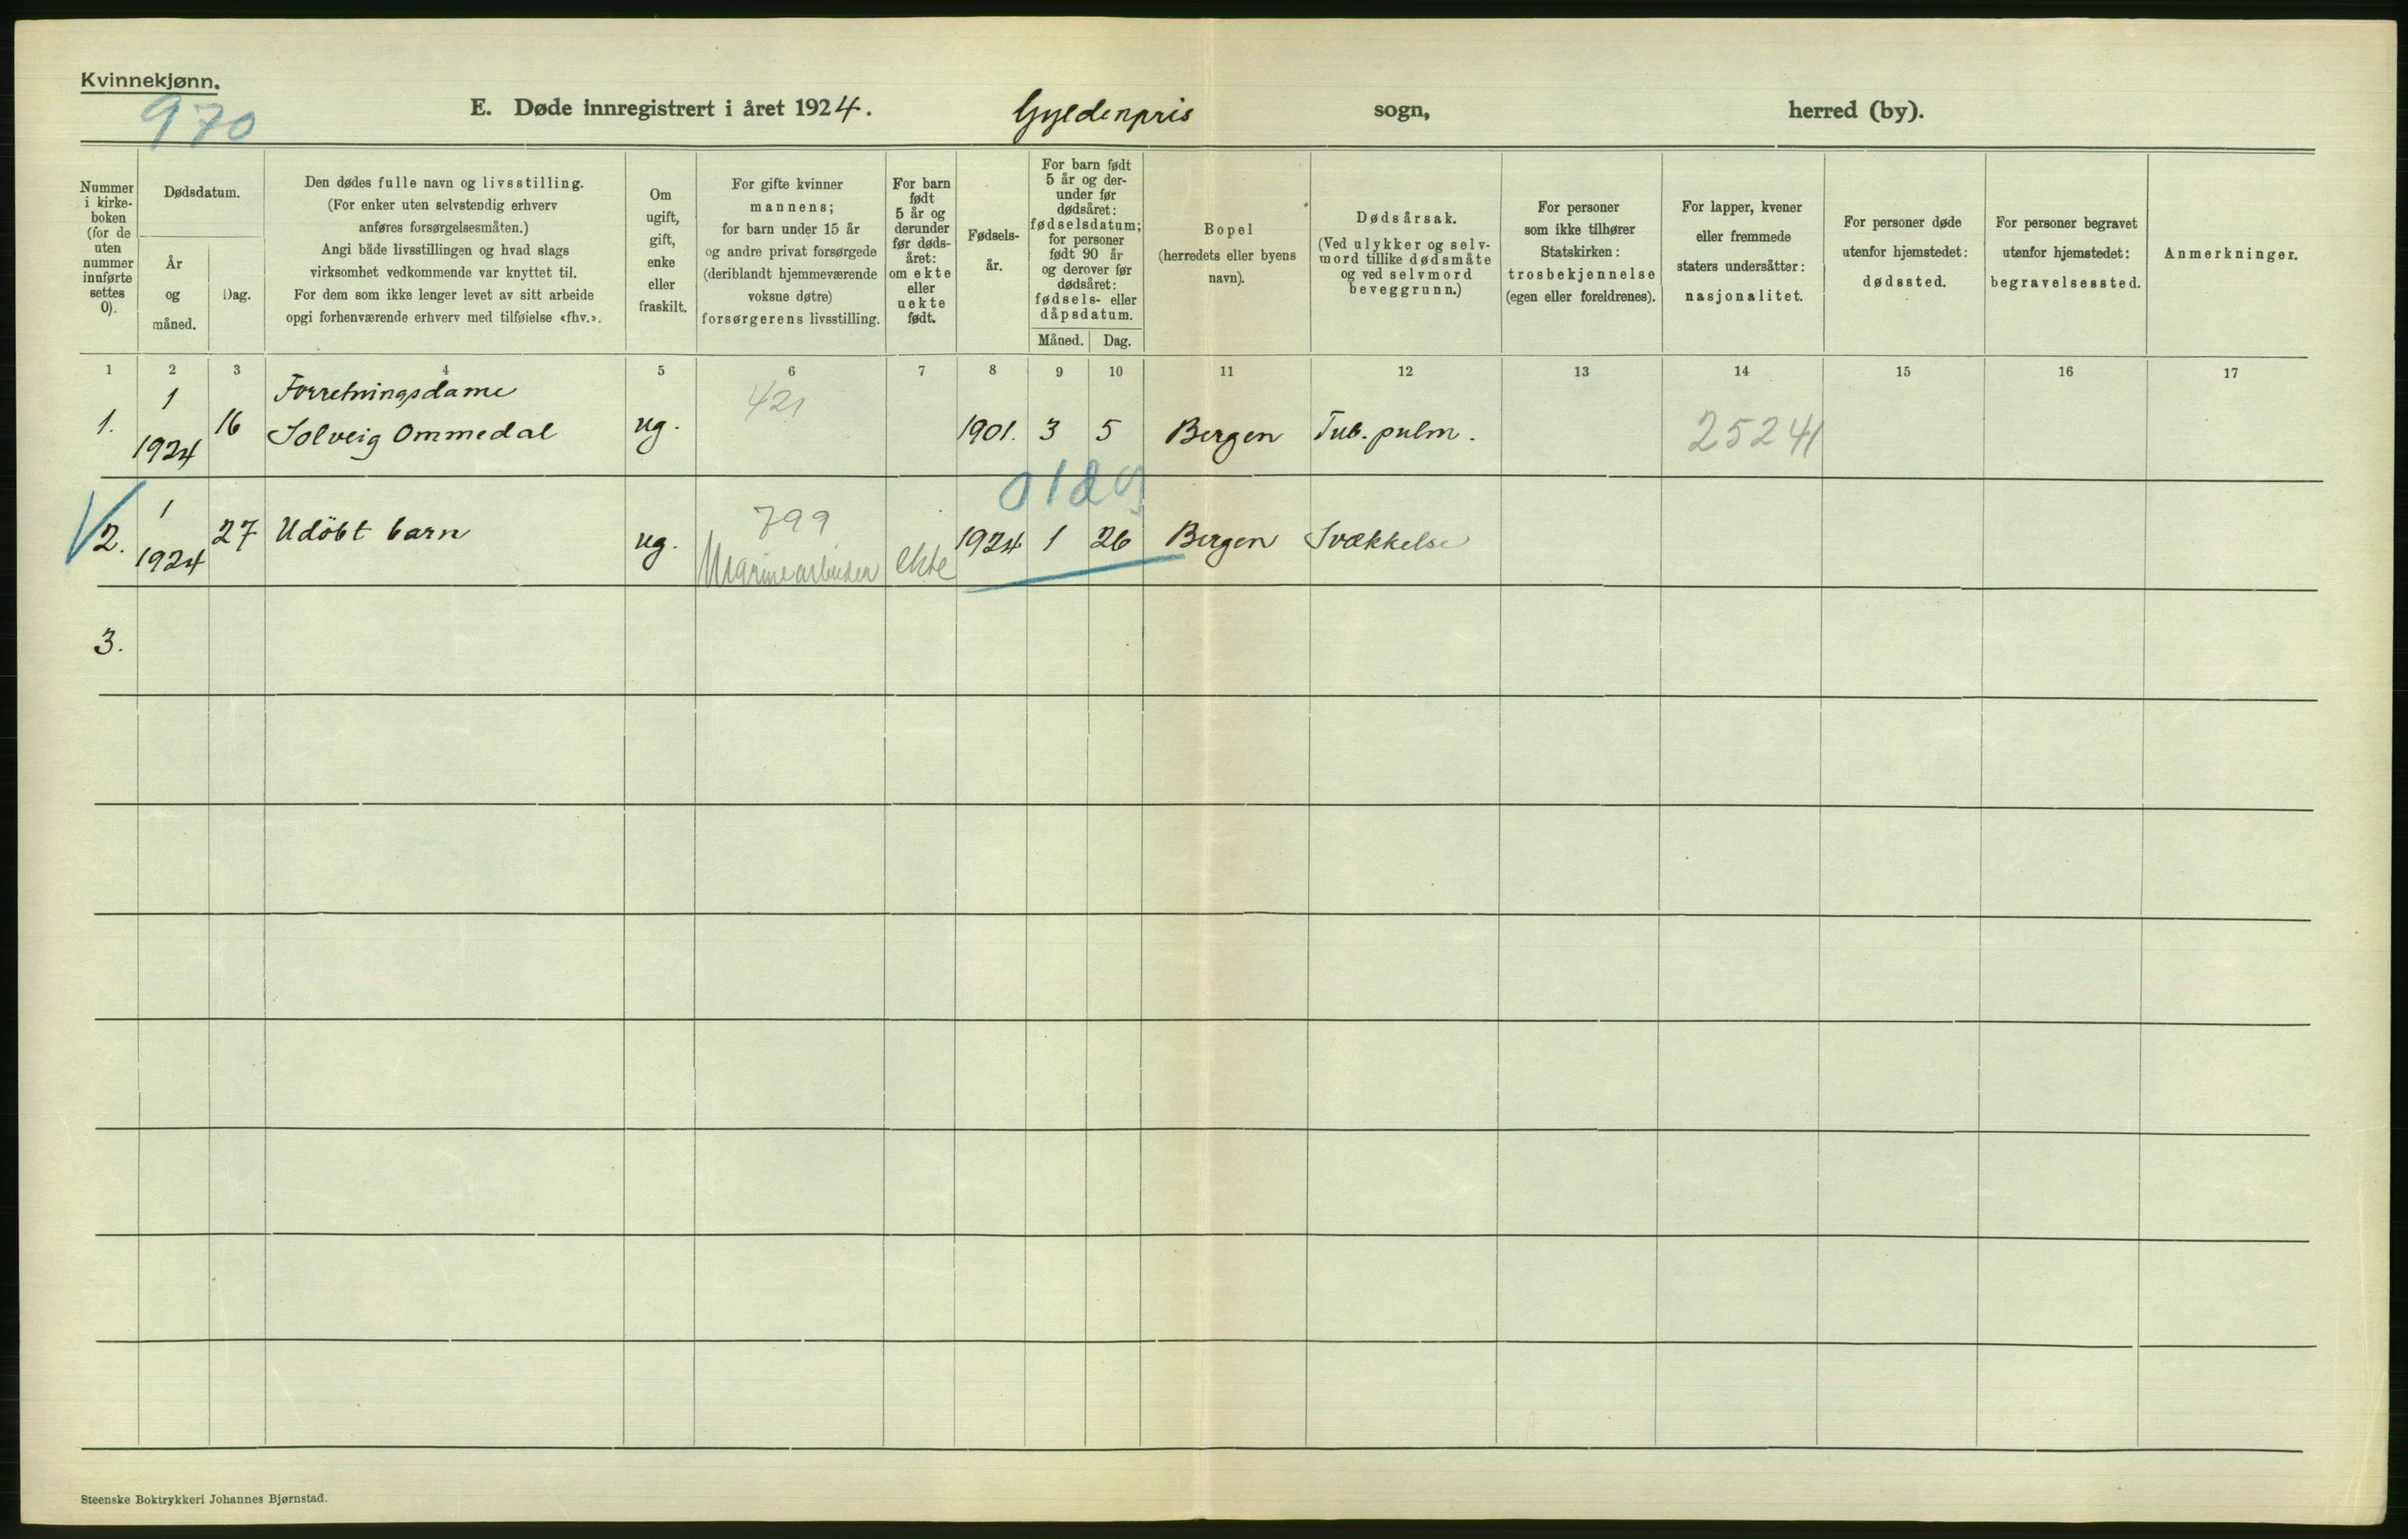 Kvinnekjønn.
970
E. Døde innregistrert i året 1924. Gyldenpris sogn, herred (by).
Nummer
i kirke-
boken
(for de
uten
nummer
innførte
settes
0).
Dødsdatum.
År
og
måned.
Dag.
Den dødes fulle navn og livsstilling.
(For enker uten selvstendig erhverv
anføres forsørgelsesmåten.)
Angi både livsstillingen og hvad slags
virksomhet vedkommende var knyttet til.
For dem som ikke lenger levet av sitt arbeide
opgi forhenværende erhverv med tilføielse «fhv.».
Om
ugift,
gift,
enke
eller
fraskilt.
For gifte kvinner
mannens;
for barn under 15 år
og andre privat forsørgede
(deriblandt hjemmeværende
voksne døtre)
forsørgerens livsstilling.
For barn
født
5 år og
derunder
før døds-
året:
om ekte
eller
uekte
født.
Fødsels-
år.
For barn født
5 år og der-
under før
dødsåret:
fødselsdatum;
for personer
født 90 år
og derover før
dødsåret:
fødsels- eller
dåpsdatum.
Måned. Dag.
Bopel
(herredets eller byens
navn).
Dødsårsak.
(Ved ulykker og selv-
mord tillike dødsmåte
og ved selvmord
beveggrunn.)
For personer
som ikke tilhører
Statskirken:
trosbekjennelse
(egen eller foreldrenes).
For lapper, kvener
eller fremmede
staters undersåtter:
nasjonalitet.
For personer døde
utenfor hjemstedet:
dødssted.
For personer begravet
utenfor hjemstedet:
begravelsessted.
Anmerkninger.
1 2 3 4 5 6 7 8 9 10 11 12 13 14 15 16 17
1 Forretningsdame 421
1. 1924 16 Solveig Ommedal ug. 1901. 3 5 Bergen Tub. pulm. 25241
1 799
2. 1924 27 Udöbt barn ug. ekte 1924 1 26 Bergen Svækkelse
3.
Steenske Boktrykkeri Johannes Bjørnstad.